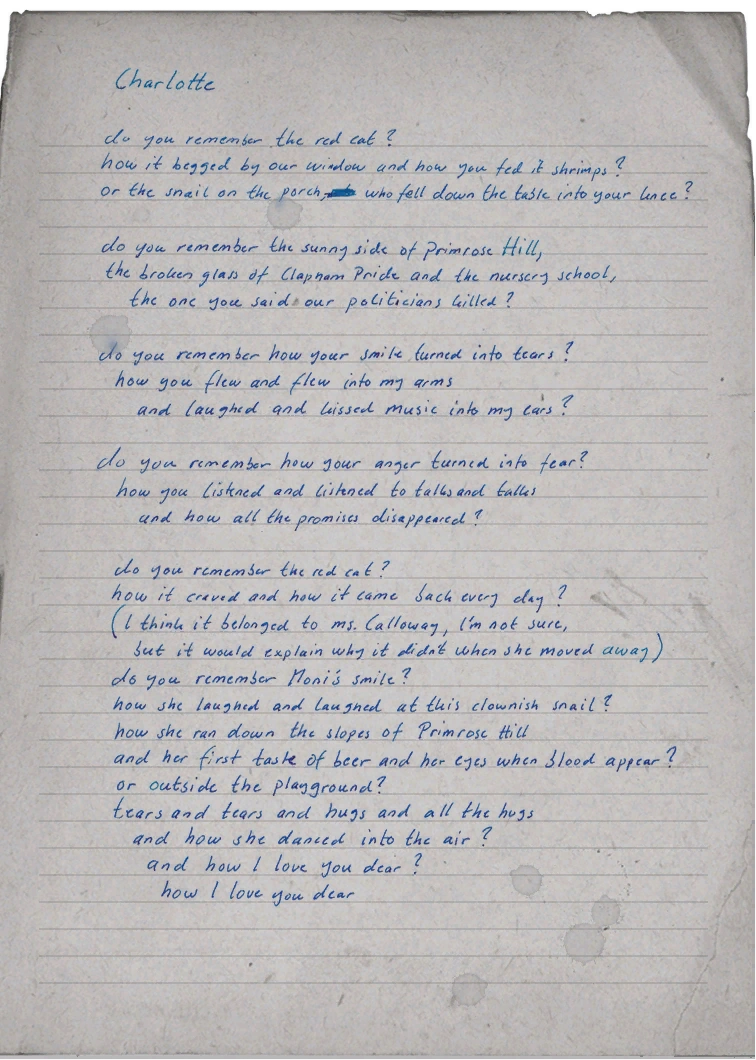 Charlotte
do you remember the red cat?
how it begged by our window and how you fed it shrimps?
or the snail on the porch, who fell down the table into your knee?
do you remember the sunny side of Primrose Hill,
the broken glass of Clapham Pride and the nursery school,
the one you said our politicians killed?
do you remember how your smile turned into tears?
how you flew and flew into my arms
and laughed and kissed music into my ears?
do you remember how your anger turned into fear?
how you listened and listened to talks and talks
and how all the promises disappeared?
do you remember the red cat?
how it craved and how it came back every day?
(I think it belonged to ms. Calloway, I'm not sure,
but it would explain why it didn't when she moved away)
do you remember Moni's smile?
how she laughed and laughed at this clownish snail?
how she ran down the slopes of Primrose Hill
and her first taste of beer and her eyes when blood appear?
or outside the playground?
tears and tears and hugs and all the hugs
and how she danced into the air?
and how I love you dear?
how I love you dear